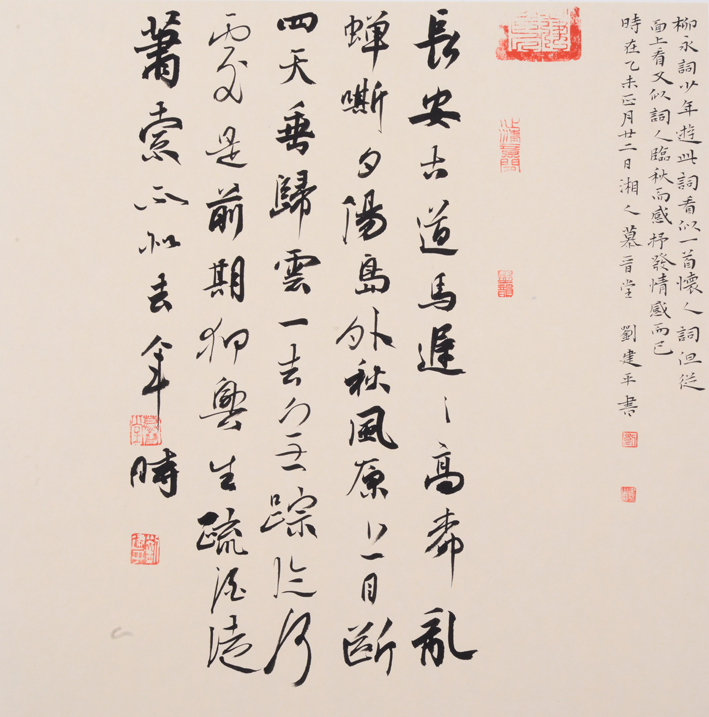 柳永詞少年遊此詞看似一首懷人詞但從
面上看又似詞人臨秋而感抒發情感而已
時在乙未正月廿二日湘人慕晋堂 劉建平書
長安古道馬遲〻高柳亂
蟬嘶夕陽島外秋風原上目斷
四天垂歸雲一去無踪迹何
處是前期狎興生疏酒徒
蕭索不似去年時